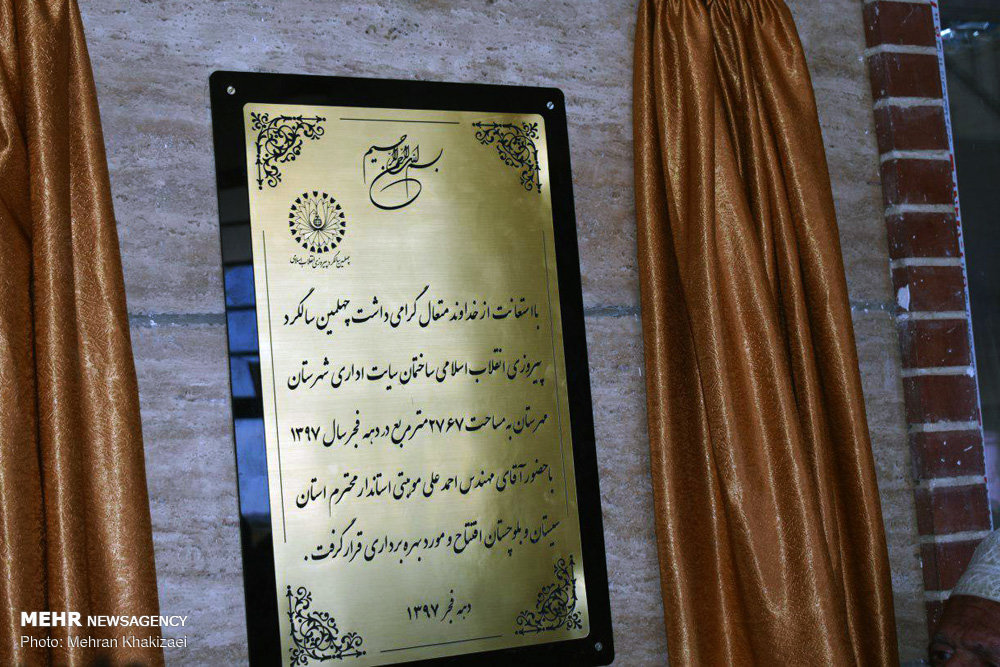 بسم الله الرحمن الرحیم
چهلمین سالگرد پیروزی انقلاب اسلامی
با استعانت از خداوند متعال گرامی داشت چهلمین سالگرد
پیروزی انقلاب اسلامی ساختمان سایت اداری شهرستان
مهرستان به مساحت ۲۷۶۷ مترمربع در دهه فجر سال ۱۳۹۷
با حضور آقای مهندس احمد علی موهبتی استاندار محترم استان
سیستان و بلوچستان افتتاح و مورد بهره برداری قرار گرفت .
دهه فجر ۱۳۹۷
MEHR NEWSAGENCY
Photo: Mehran Khakizaei